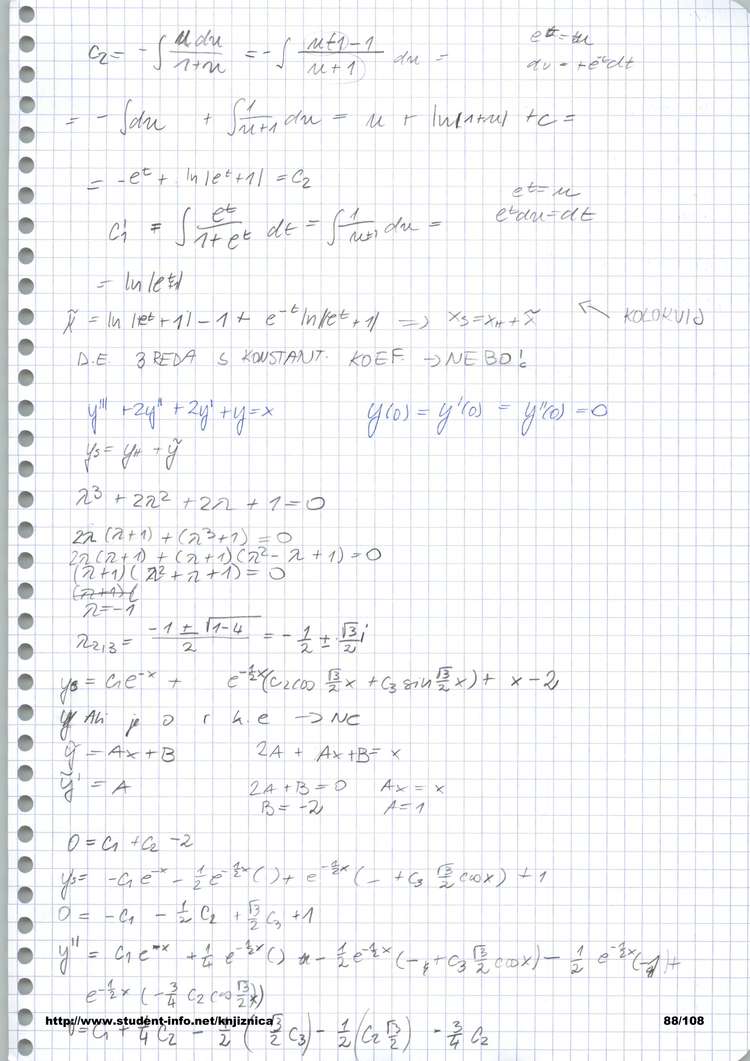 c₂ = -∫ u du / 1+u = -∫ u+1-1 / u+1 du =
e^t = u
= -∫du + ∫ 1/u+1 du = u + ln|1+u| + c =
= -e^t + ln|e^t+1| = c₂
e^t = u
e^t du = dt
c₁' = ∫ e^t / 1+e^t dt = ∫ 1/u+1 du =
= ln|e^t+1|
x̃ = ln|e^t+1| - 1 + e^-t ln|e^t+1| => x_s = x_H + x̃ KOLOKVIJ
D.E 3 REDA S KONSTANT. KOEF. → NEBO!
y''' + 2y'' + 2y' + y = x y(0) = y'(0) = y''(0) = 0
y_s = y_H + ỹ
λ³ + 2λ² + 2λ + 1 = 0
2λ(λ+1) + (λ³+1) = 0
2λ(λ+1) + (λ+1)(λ² - λ + 1) = 0
(λ+1)(λ² + λ + 1) = 0
(λ+1)(
λ = -1
λ₂,₃ = -1 ± √1-4 / 2 = -1/2 ± √3/2 i
y_s = c₁e^-x + e^-1/2x (c₂ cos √3/2 x + c₃ sin √3/2 x) + x - 2
Ali je 0 r k.e → NE
ỹ = Ax + B 2A + Ax + B = x
ỹ' = A 2A + B = 0 Ax = x
B = -2 A = 1
0 = c₁ + c₂ - 2
y_s = -c₁e^-x - 1/2 e^-1/2x ( ) + e^-1/2x (- + c₃ √3/2 cos x) + 1
0 = -c₁ - 1/2 c₂ + √3/2 c₃ + 1
y'' = c₁e^-x + 1/4 e^-1/2x ( ) - 1/2 e^-1/2x (- + c₃ √3/2 cos x) - 1/2 e^-1/2x (-) +
e^-1/2x (-3/4 c₂ cos √3/2 x)
http://www.student-info.net/knjiznica 88/108
0 = c₁ + 1/4 c₂ - 1/2 (√3/2 c₃) - 1/2 (c₂ √3/2) - 3/4 c₂